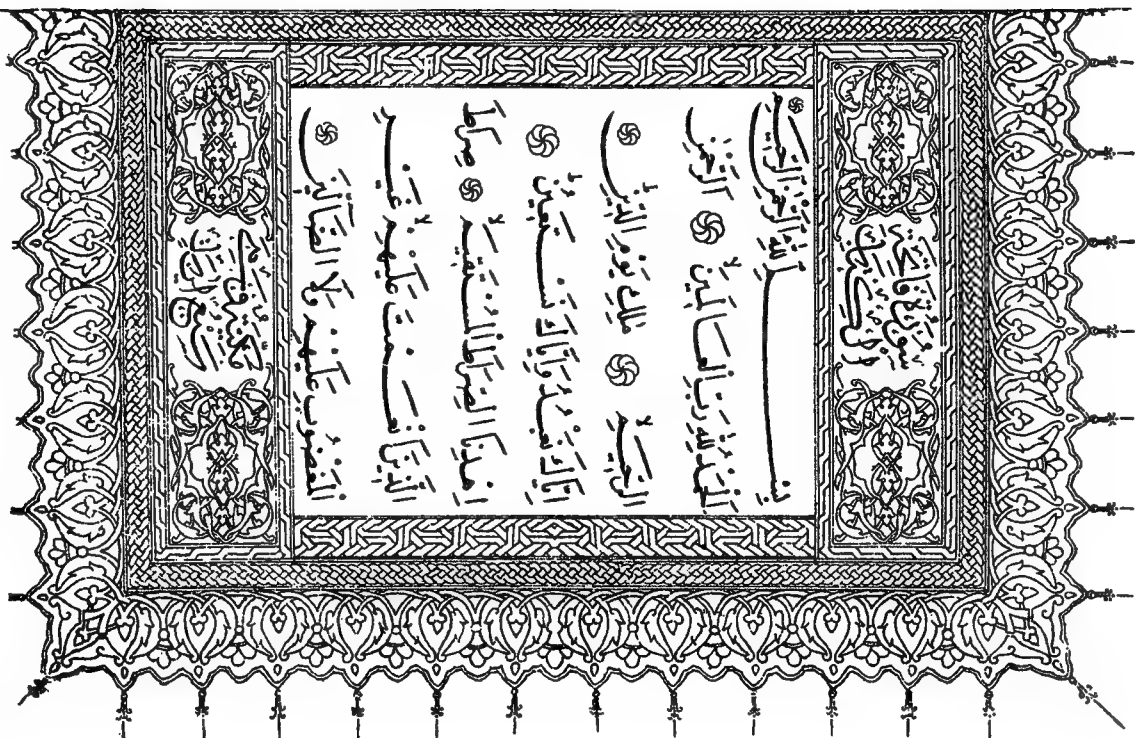 سُورَةُ
بِسْمِ اللَّهِ الرَّحْمٰنِ الرَّحِيمِ
اَلْحَمْدُ لِلَّهِ رَبِّ الْعَالَمِينَ الرَّحْمٰنِ
الرَّحِيمِ مَالِكِ يَوْمِ الدِّينِ
اِيَّاكَ نَعْبُدُ وَاِيَّاكَ نَسْتَعِينُ
اِهْدِنَا الصِّرَاطَ الْمُسْتَقِيمَ صِرَاطَ
الَّذِينَ اَنْعَمْتَ عَلَيْهِمْ غَيْرِ
الْمَغْضُوبِ عَلَيْهِمْ وَلَا الضَّالِّينَ